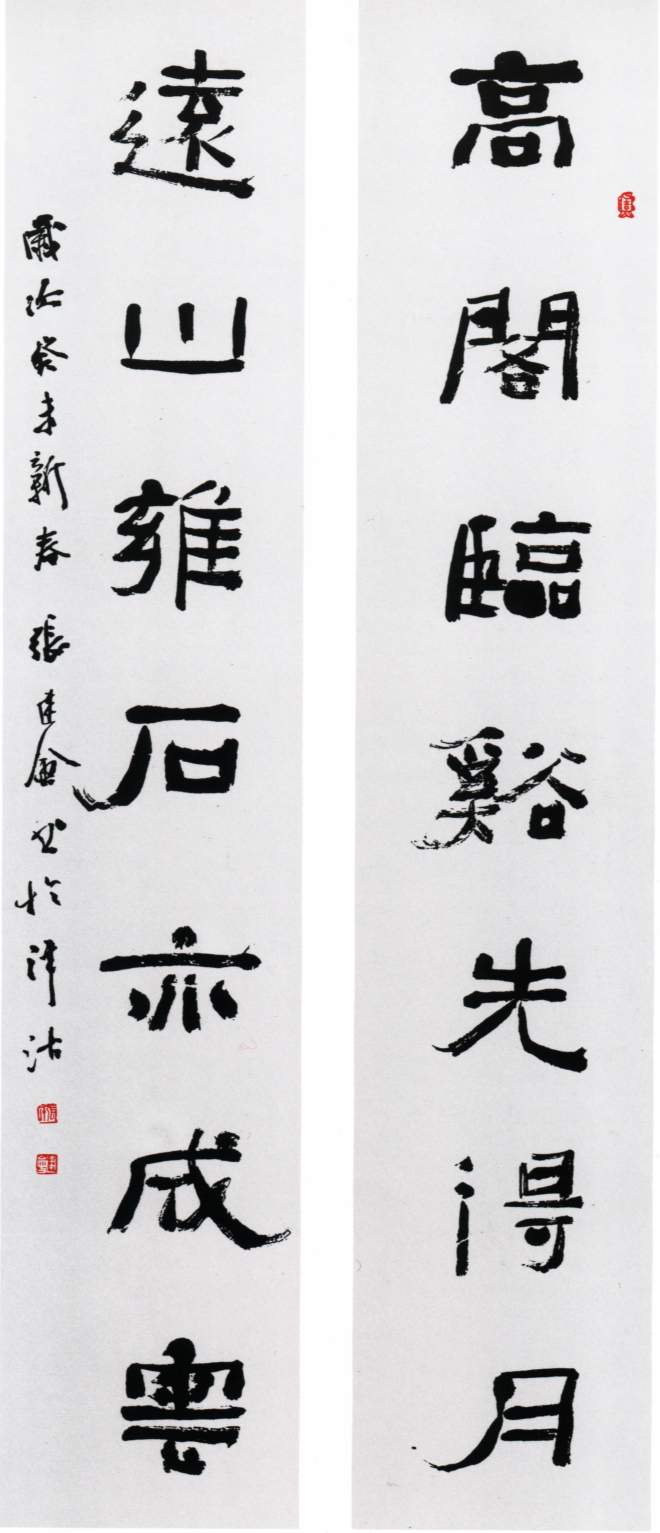 高閣臨谿先得月
遠山雍石亦成雲
歲次癸未新春張建會書於津沽